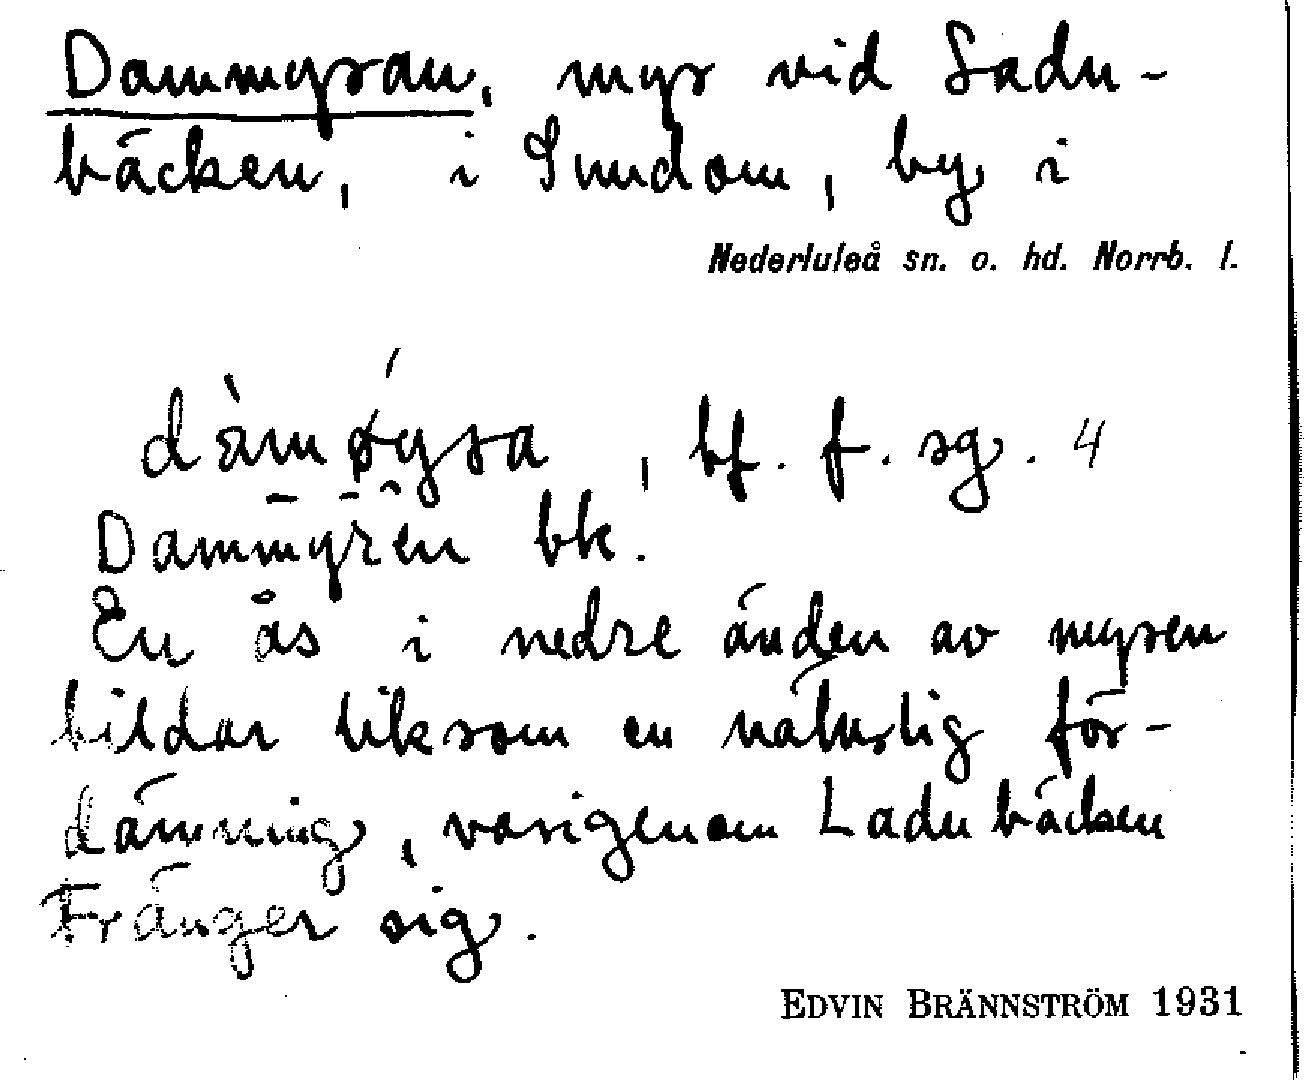 Dammyran, myr vid Ladu-
bäcken, i Sundom, by i
Nederluleå sn. o. hd. Norrb. l.
, bf. f. sg. 4
Dammyren bk.
En ås i nedre änden av myren
bildar liksom en naturlig för-
dämning, varigenom Ladubäcken
tränger sig.
EDVIN BRÄNNSTRÖM 1931